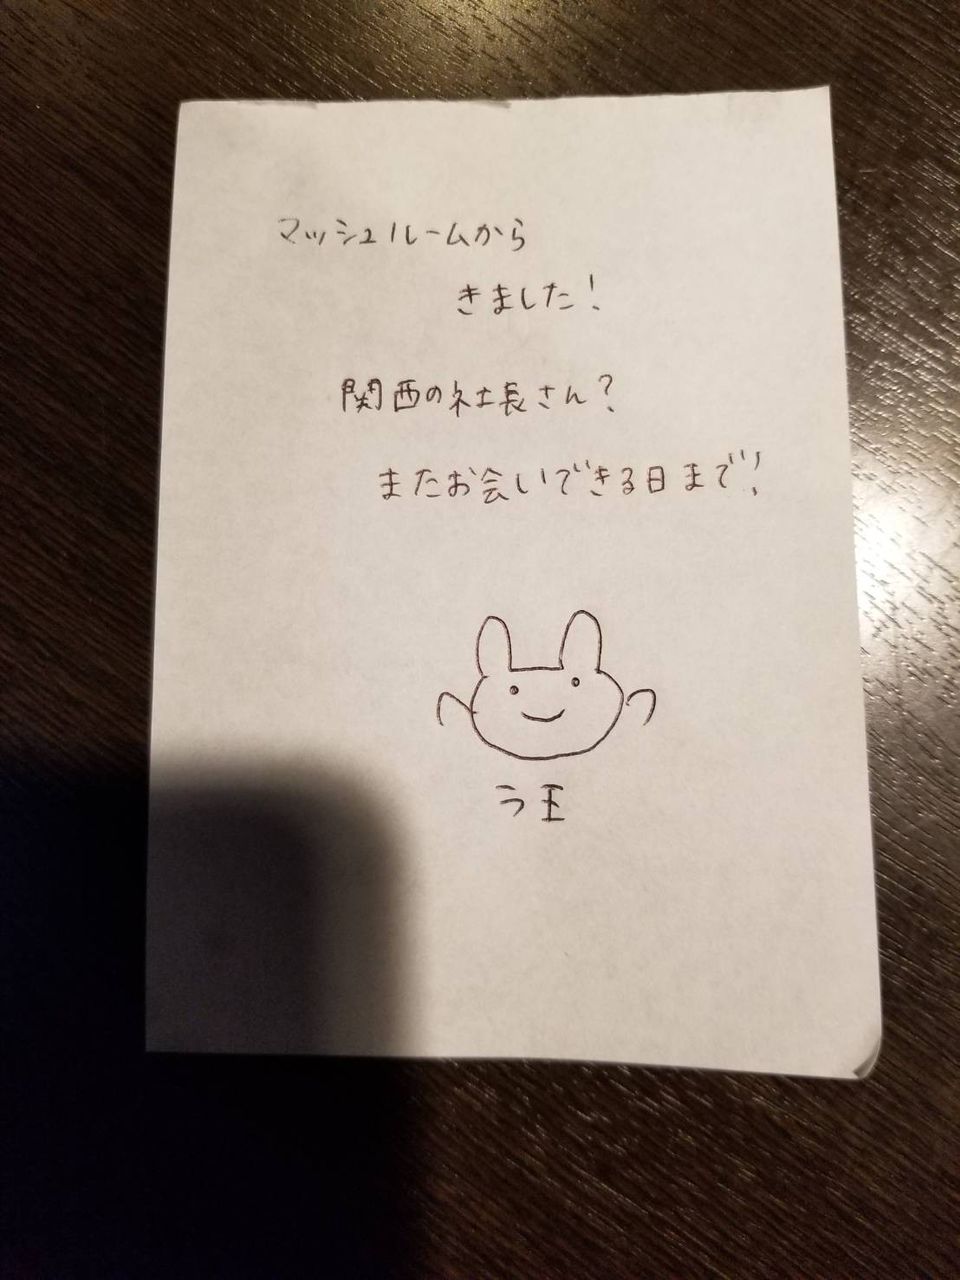 マッシュルームから
きました!
関西の社長さん?
またお会いできる日まで!
ラ王